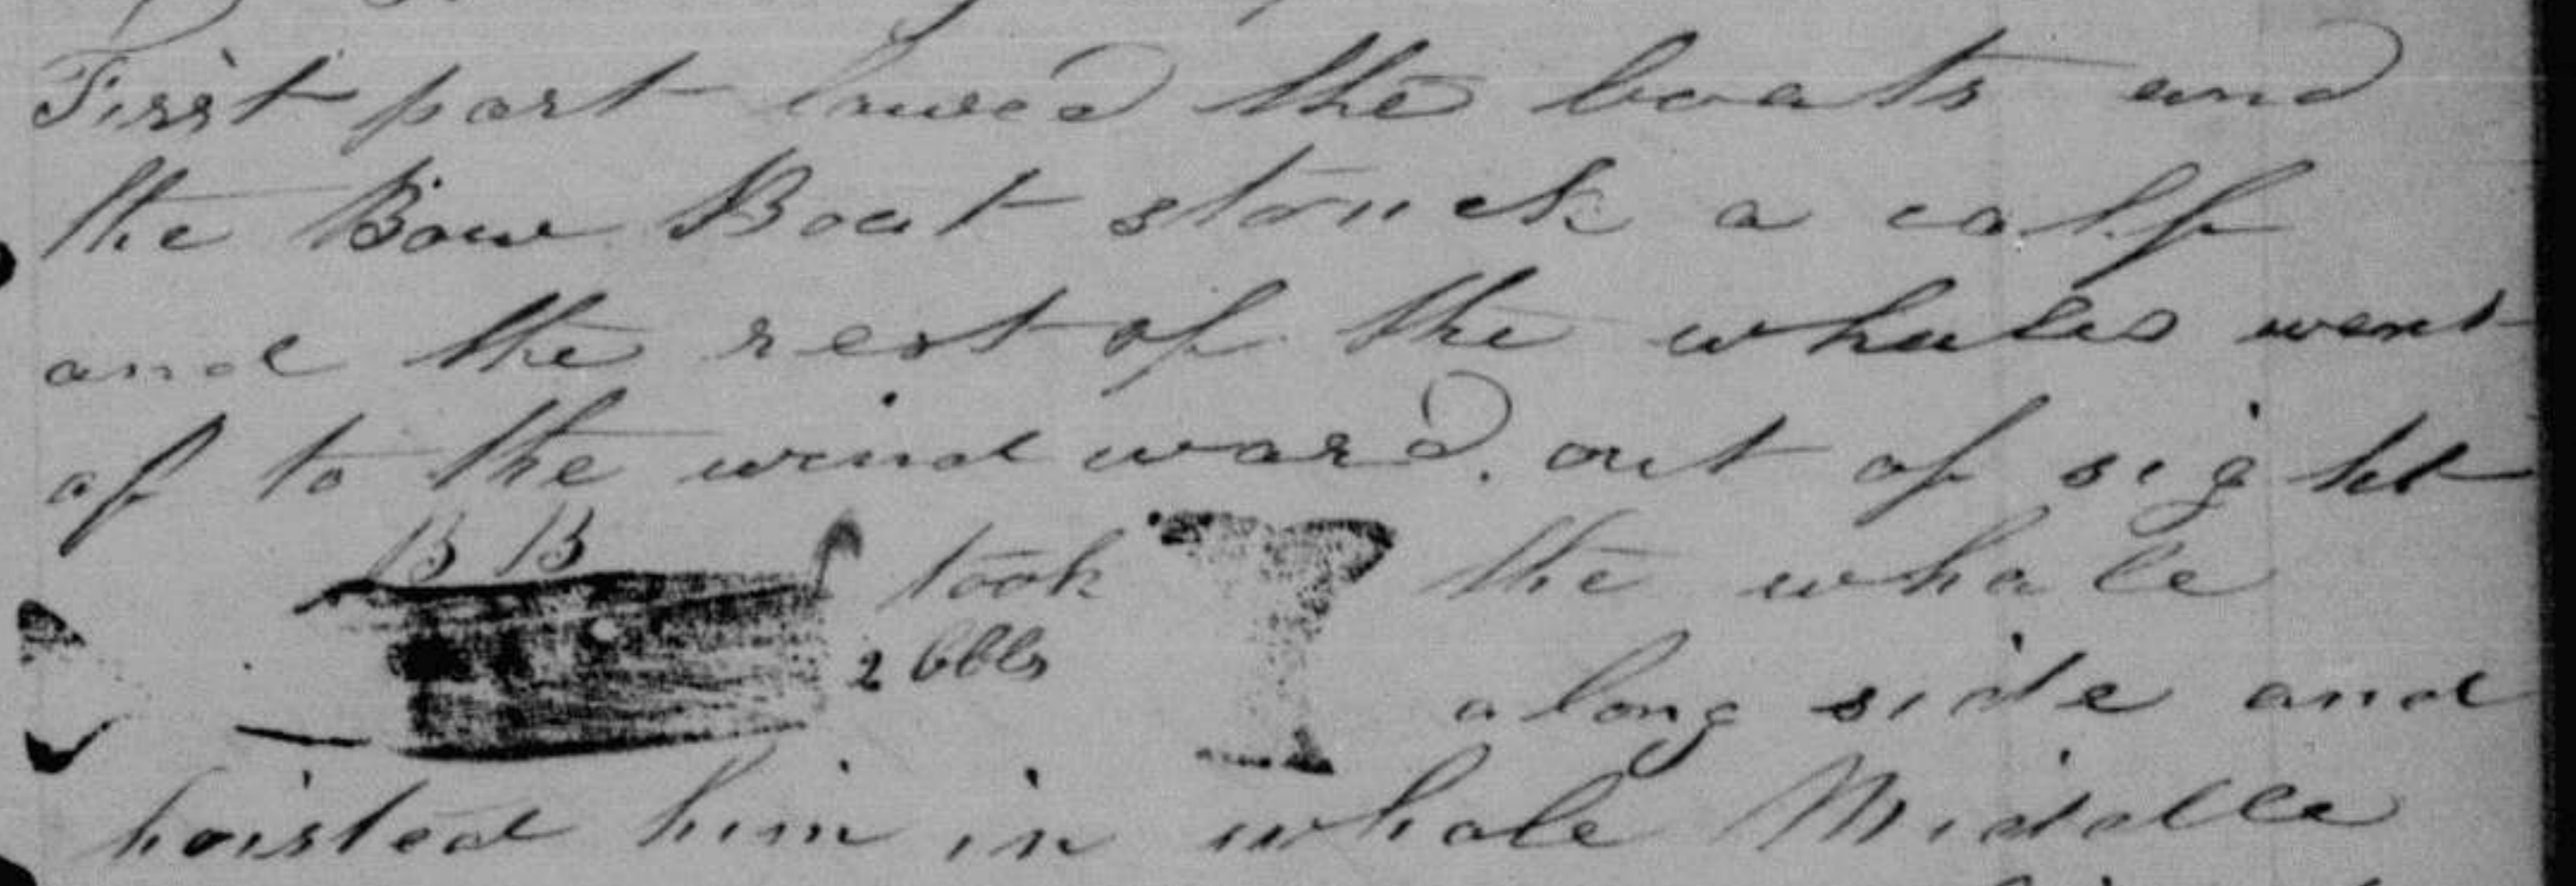 First part lowed the boats and
the Bow Boat struck a calf
and the rest of the whales went
of to the wind ward. out of sight
B B took the whale
2 bbls
along side and
hoisted him in whole Middle